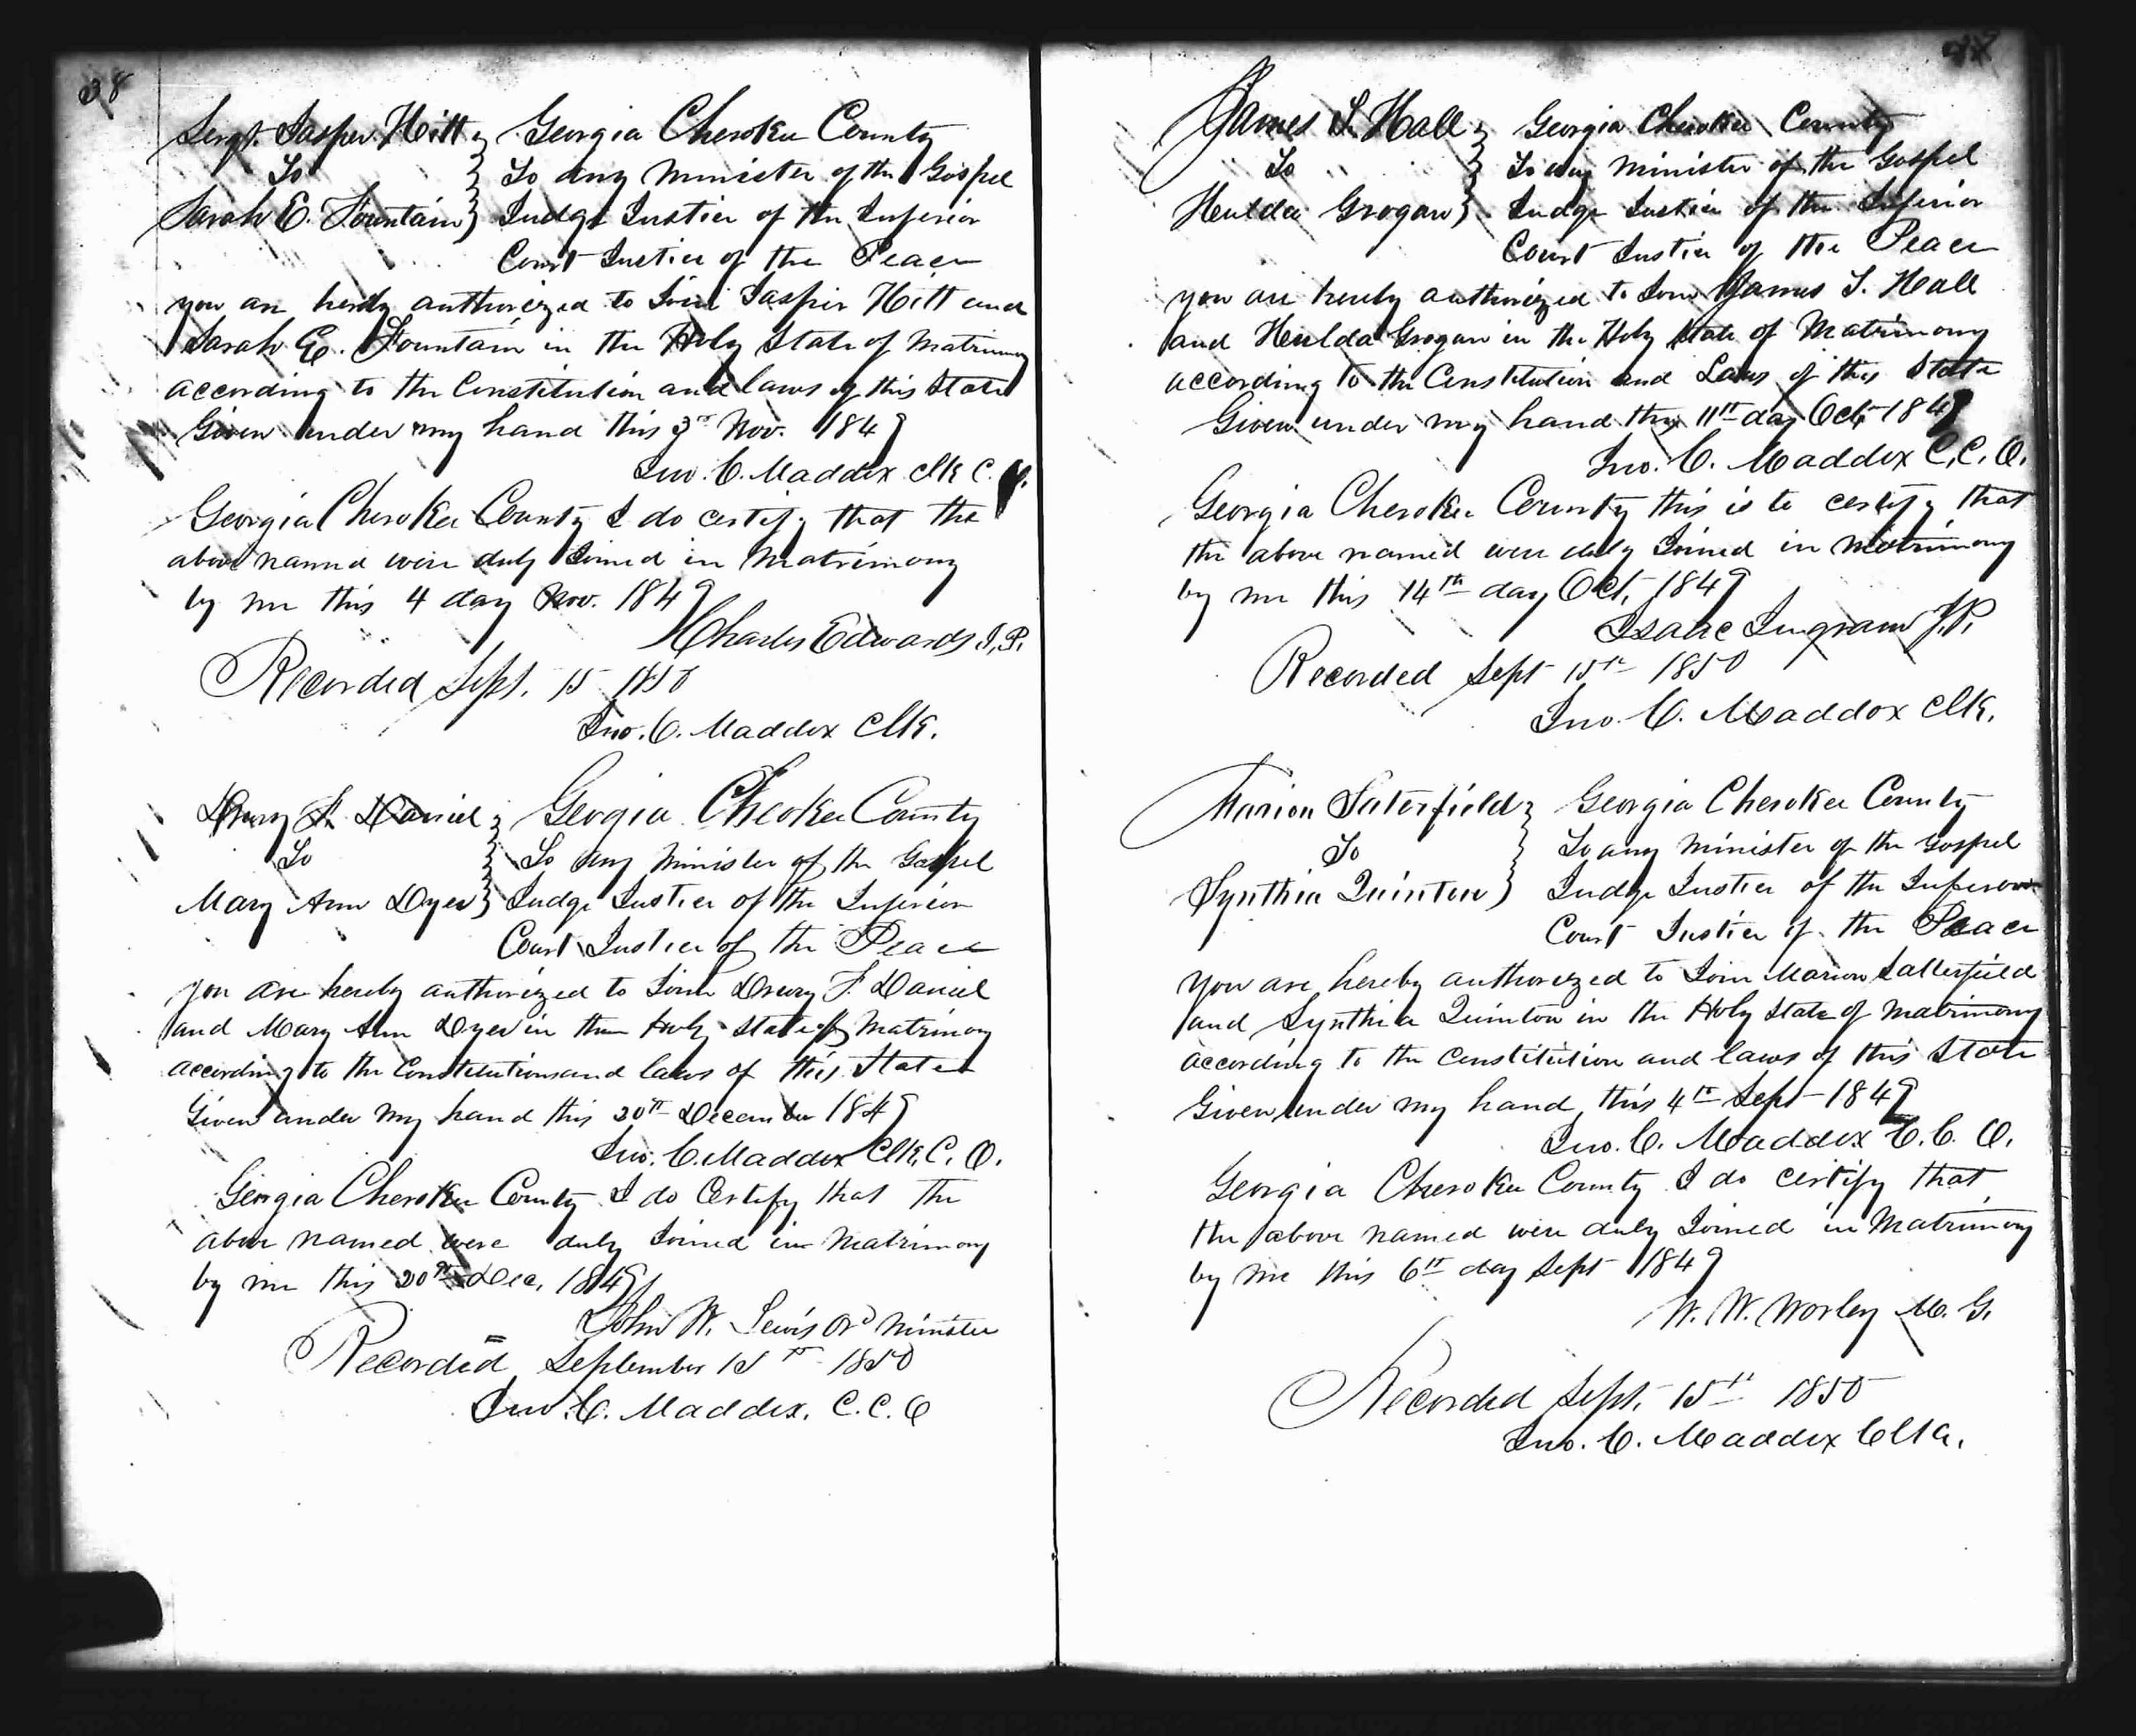 38
Sergt. Jasper Hitt } Georgia Cherokee County
To } To any minister of the Gospel
Sarah E. Fountain } Judge Justice of the Inferior
Court Justice of the Peace
you are hereby authorized to Join Jasper Hitt and
Sarah E. Fountain in the Holy State of Matrimony
according to the Constitution and laws of this State
Given under my hand this 3rd Nov. 1849
Jno. C. Maddox Clk C.
Georgia Cherokee County I do certify that the
above named were duly Joined in Matrimony
by me this 4 day Nov. 1849
Charles Edwards J.P.
Recorded Sept. 15 1850
Jno. C. Maddox Clk.
Drury F. Daniel } Georgia Cherokee County
To } To any Minister of the Gospel
Mary Ann Dyer } Judge Justice of the Inferior
Court Justice of the Peace
You are hereby authorized to Join Drury F. Daniel
and Mary Ann Dyer in the Holy State of Matrimony
according to the Constitution and laws of this State
Given under my hand this 20th December 1849
Jno. C. Maddox Clk. C. O.
Georgia Cherokee County I do Certify that the
above named were duly Joined in Matrimony
by me this 20th Dec. 1849
John W. Lewis Ord Minister
Recorded September 15th 1850
Jno. C. Maddox. C.C.O
James T. Hall } Georgia Cherokee County
To } To any minister of the Gospel
Hulda Grogan } Judge Justice of the Inferior
Court Justice of the Peace
you are hereby authorized to Join James T. Hall
and Hulda Grogan in the Holy State of Matrimony
according to the Constitution and Laws of this State
Given under my hand this 11th day Oct 1849
Jno. C. Maddox C.C.O.
Georgia Cherokee County this is to certify that
the above named were duly Joined in matrimony
by me this 14th day Oct, 1849
Isaac Ingram J.P.
Recorded Sept 15th 1850
Jno. C. Maddox Clk.
Marion Saterfield } Georgia Cherokee County
To } To any Minister of the Gospel
Synthia Quinton } Judge Justice of the Inferior
Court Justice of the Peace
You are hereby authorized to Join Marion Satterfield
and Synthia Quinton in the Holy State of Matrimony
according to the Constitution and laws of this State
Given under my hand this 4th Sept 1849
Jno. C. Maddox C.C.O.
Georgia Cherokee County I do certify that
the above named were duly Joined in Matrimony
by me this 6th day Sept 1849
W. W. Worley M. G.
Recorded Sept. 15th 1850
Jno. C. Maddox Clk.